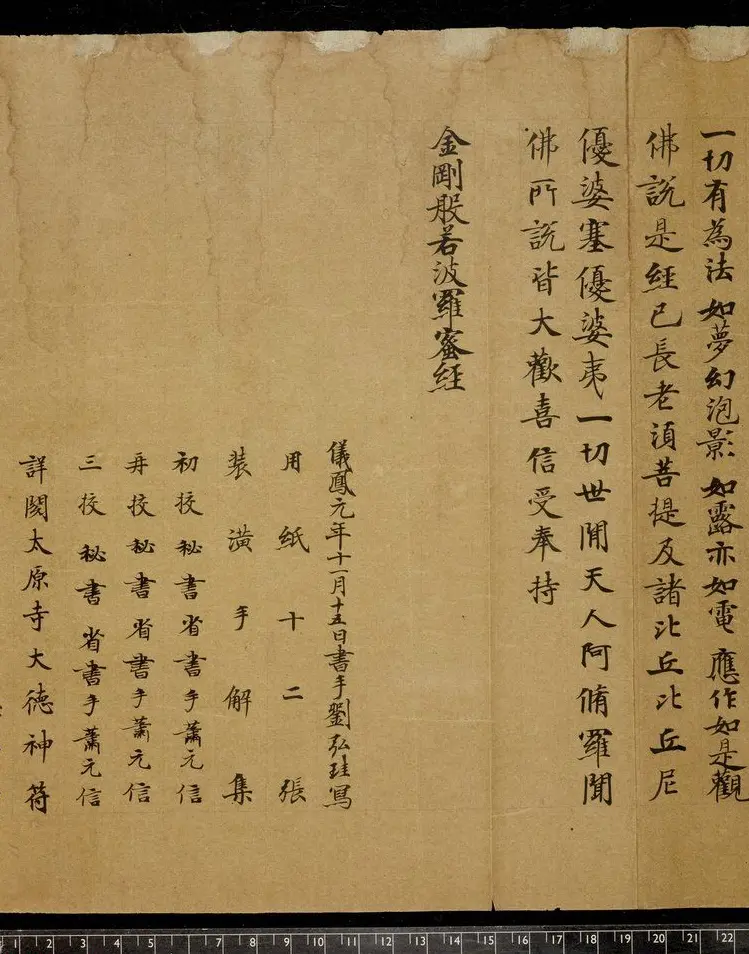 一切有為法 如夢幻泡影 如露亦如電 應作如是觀
佛說是經已長老湏菩提及諸比丘比丘尼
優婆塞優婆夷一切世閒天人阿脩羅聞
佛所說皆大歡喜信受奉持
金剛般若波羅蜜經
儀鳳元年十一月十五日書手劉弘珪寫
用紙十二張
装潢手解集
初校秘書省書手蕭元信
再校秘書省書手蕭元信
三校秘書省書手蕭元信
詳閱太原寺大德神苻
1 2 3 4 5 7 8 9 10 11 12 13 14 15 16 17 18 19 20 21 22